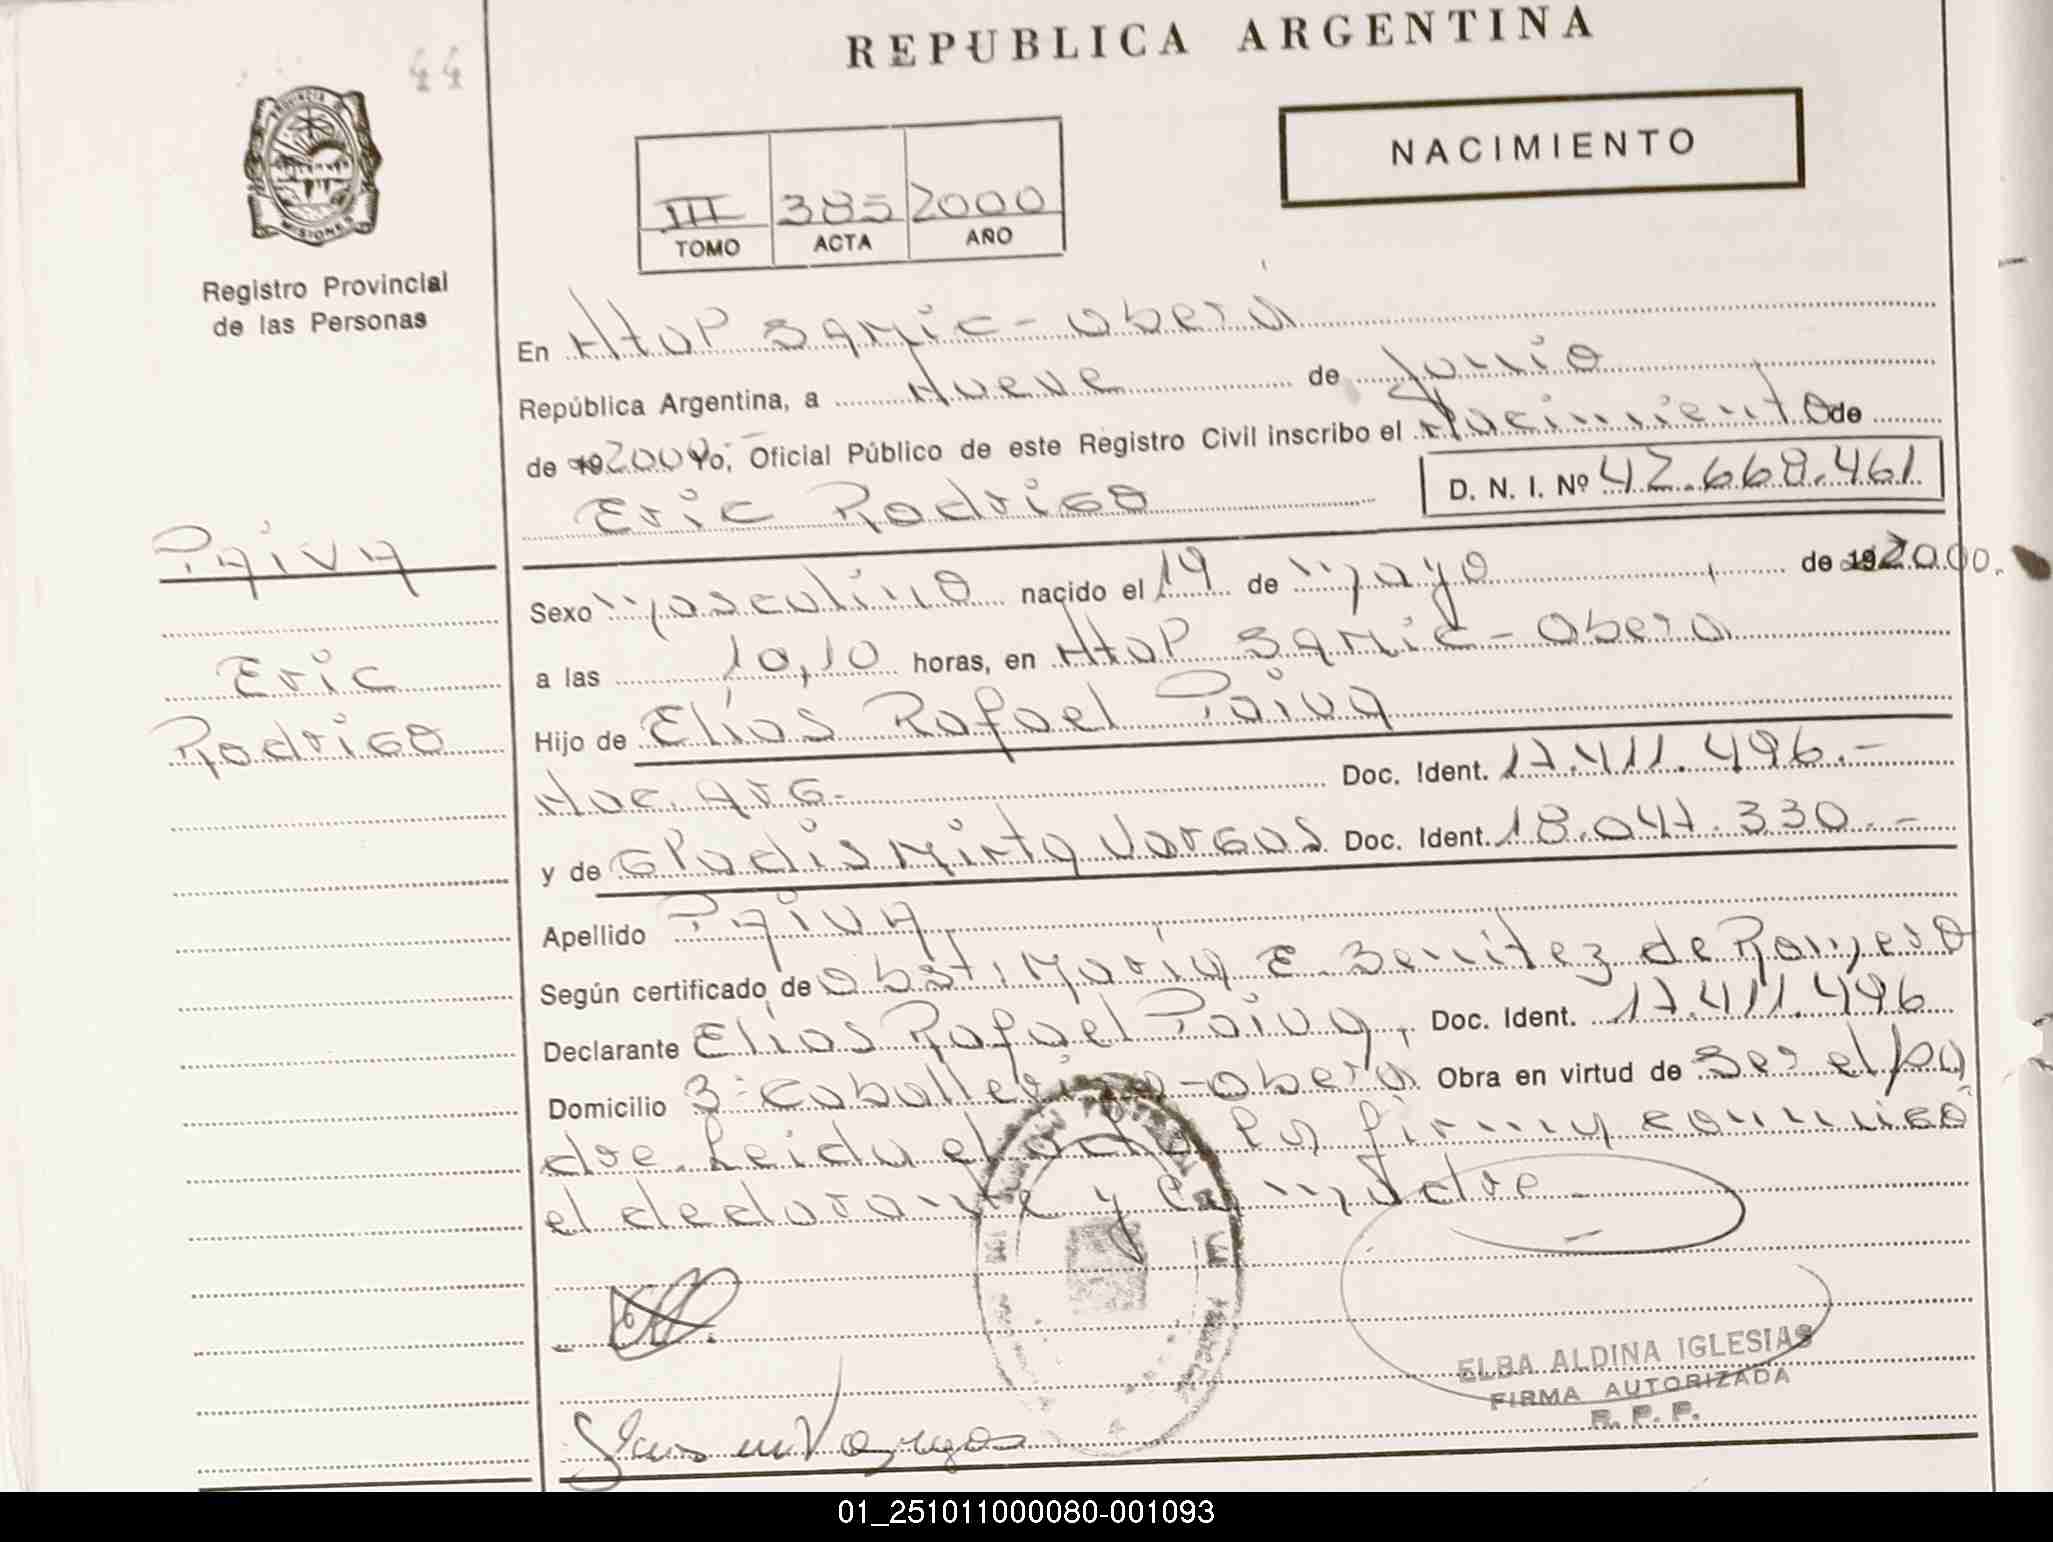 REPUBLICA ARGENTINA
44
NACIMIENTO
PROVINCIA DE
MISIONES
III 385 2000
TOMO ACTA AÑO
Registro Provincial
de las Personas
En Htal Samic - Oberá
República Argentina, a Nueve de Junio
de 19 2000 Yo, Oficial Público de este Registro Civil inscribo el Nacimiento de
Eric Rodrigo D. N. I. Nº 42.668.461
PAIVA
Eric
Rodrigo
Sexo Masculino nacido el 19 de Mayo de 19 2000.
a las 10,10 horas, en Htal Samic - Oberá
Hijo de Elías Rafael Paiva
Nac. Arg. Doc. Ident. 17.411.496.-
y de Gladis Mirta Vargas Doc. Ident. 18.047.330.-
Apellido PAIVA
Según certificado de Obst. María E. Benitez de Romero
Declarante Elías Rafael Paiva, Doc. Ident. 17.411.496
Domicilio 3: Caballeriza - Oberá Obra en virtud de ser el pa
dre. Leida el acta la firma conmigo
el declarante y la madre.-
ELBA ALDINA IGLESIAS
FIRMA AUTORIZADA
R. P. P.
01_251011000080-001093